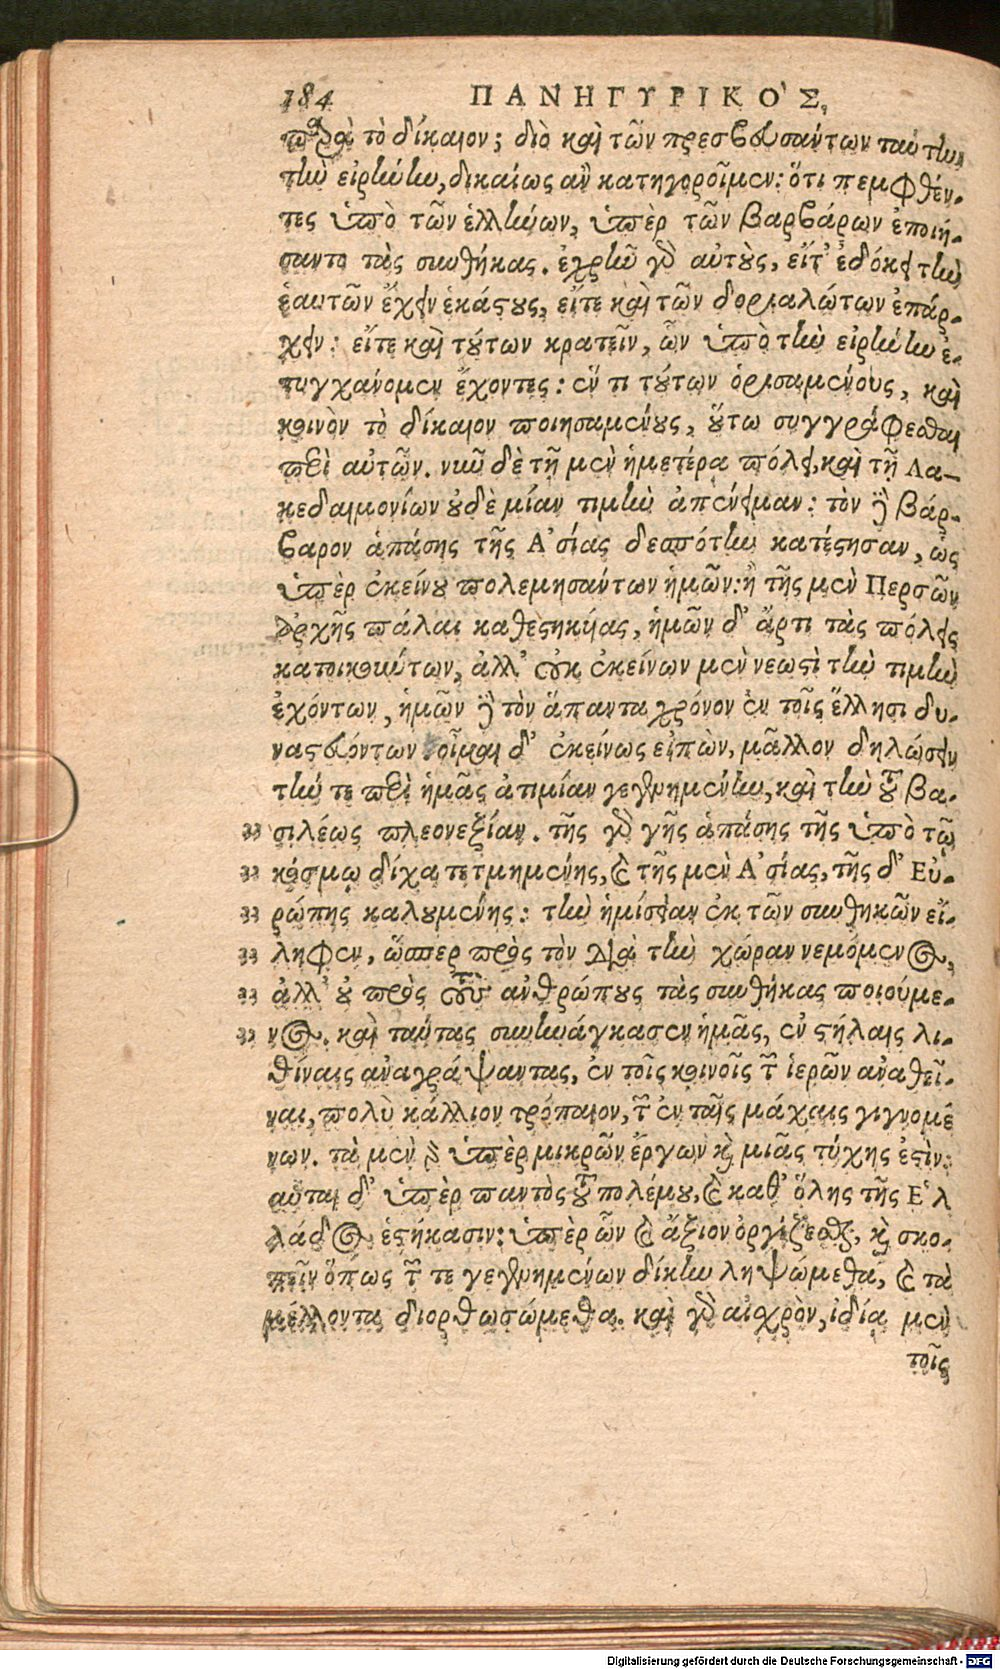 184 ΠΑΝΗΓΥΡΙΚΟ'Σ,
παρὰ τὸ δίκαιον; διὸ καὶ τῶν πρεσβευσάντων ταύτην
τὴν εἰρήνην, δικαίως ἂν κατηγοροῖμεν: ὅτι πεμφθέν-
τες ὑπὸ τῶν ἑλλήνων, ὑπὲρ τῶν βαρβάρων ἐποιή-
σαντο τὰς συνθήκας. ἐχρῆν γὰρ αὐτοὺς, εἴτ' ἐδόκει τὴν
ἑαυτῶν ἔχειν ἑκάστους, εἴτε καὶ τῶν δοριαλώτων ἐπάρ-
χειν: εἴτε καὶ τούτων κρατεῖν, ὧν ὑπὸ τὴν εἰρήνην ἐ-
τυγχάνομεν ἔχοντες: ἕν τι τούτων ὁρισαμένους, καὶ
κοινὸν τὸ δίκαιον ποιησαμένους, οὕτω συγγράφεσθαι
περὶ αὐτῶν. νῦν δὲ τῇ μὲν ἡμετέρα πόλει, καὶ τῇ Λα-
κεδαιμονίων οὐδὲ μίαν τιμὴν ἀπένειμαν: τὸν δὲ βάρ-
βαρον ἁπάσης τῆς Ἀσίας δεσπότην κατέστησαν, ὡς
ὑπὲρ ἐκείνου πολεμησάντων ἡμῶν: ἢ τῆς μὲν Περσῶν
ἀρχῆς πάλαι καθεστηκυίας, ἡμῶν δ' ἄρτι τὰς πόλεις
κατοικούντων, ἀλλ' οὐκ ἐκείνων μὲν νεωστὶ τὴν τιμὴν
ἐχόντων, ἡμῶν δὲ τὸν ἅπαντα χρόνον ἐν τοῖς ἕλλησι δυ-
ναστευόντων οἶμαι δ' ἐκείνως εἰπὼν, μᾶλλον δηλώσειν
τήν τε περὶ ἡμᾶς ἀτιμίαν γεγενημένην, καὶ τὴν τοῦ βα-
„ σιλέως πλεονεξίαν. τῆς γὰρ γῆς ἁπάσης τῆς ὑπὸ τῷ
„ κόσμῳ δίχα τετμημένης, καὶ τῆς μὲν Ἀσίας, τῆς δ' Εὐ-
„ ρώπης καλουμένης: τὴν ἡμίσειαν ἐκ τῶν συνθηκῶν εἴ-
„ ληφεν, ὥσπερ πρὸς τὸν Δία τὴν χώραν νεμόμενος,
„ ἀλλ' οὐ πρὸς τοὺς ἀνθρώπους τὰς συνθήκας ποιούμε-
„ νος. καὶ ταύτας συνηνάγκασεν ἡμᾶς, ἐν στήλαις λι-
θίναις ἀναγράψαντας, ἐν τοῖς κοινοῖς τῶν ἱερῶν ἀναθεῖ-
ναι, πολὺ κάλλιον τρόπαιον, τῶν ἐν ταῖς μάχαις γιγνομέ
νων. τὰ μὲν γὰρ ὑπὲρ μικρῶν ἔργων καὶ μιᾶς τύχης ἐστίν:
αὗται δ' ὑπὲρ παντὸς τοῦ πολέμου, καὶ καθ' ὅλης τῆς Ἑλ
λάδος ἑστήκασιν: ὑπὲρ ὧν καὶ ἄξιον ὀργίζεσθαι, καὶ σκο-
πεῖν ὅπως τῶν τε γεγενημένων δίκην ληψώμεθα, καὶ τὰ
μέλλοντα διορθωσώμεθα. καὶ γὰρ αἰσχρὸν, ἰδίᾳ μὲν
τοῖς
Digitalisierung gefördert durch die Deutsche Forschungsgemeinschaft - DFG